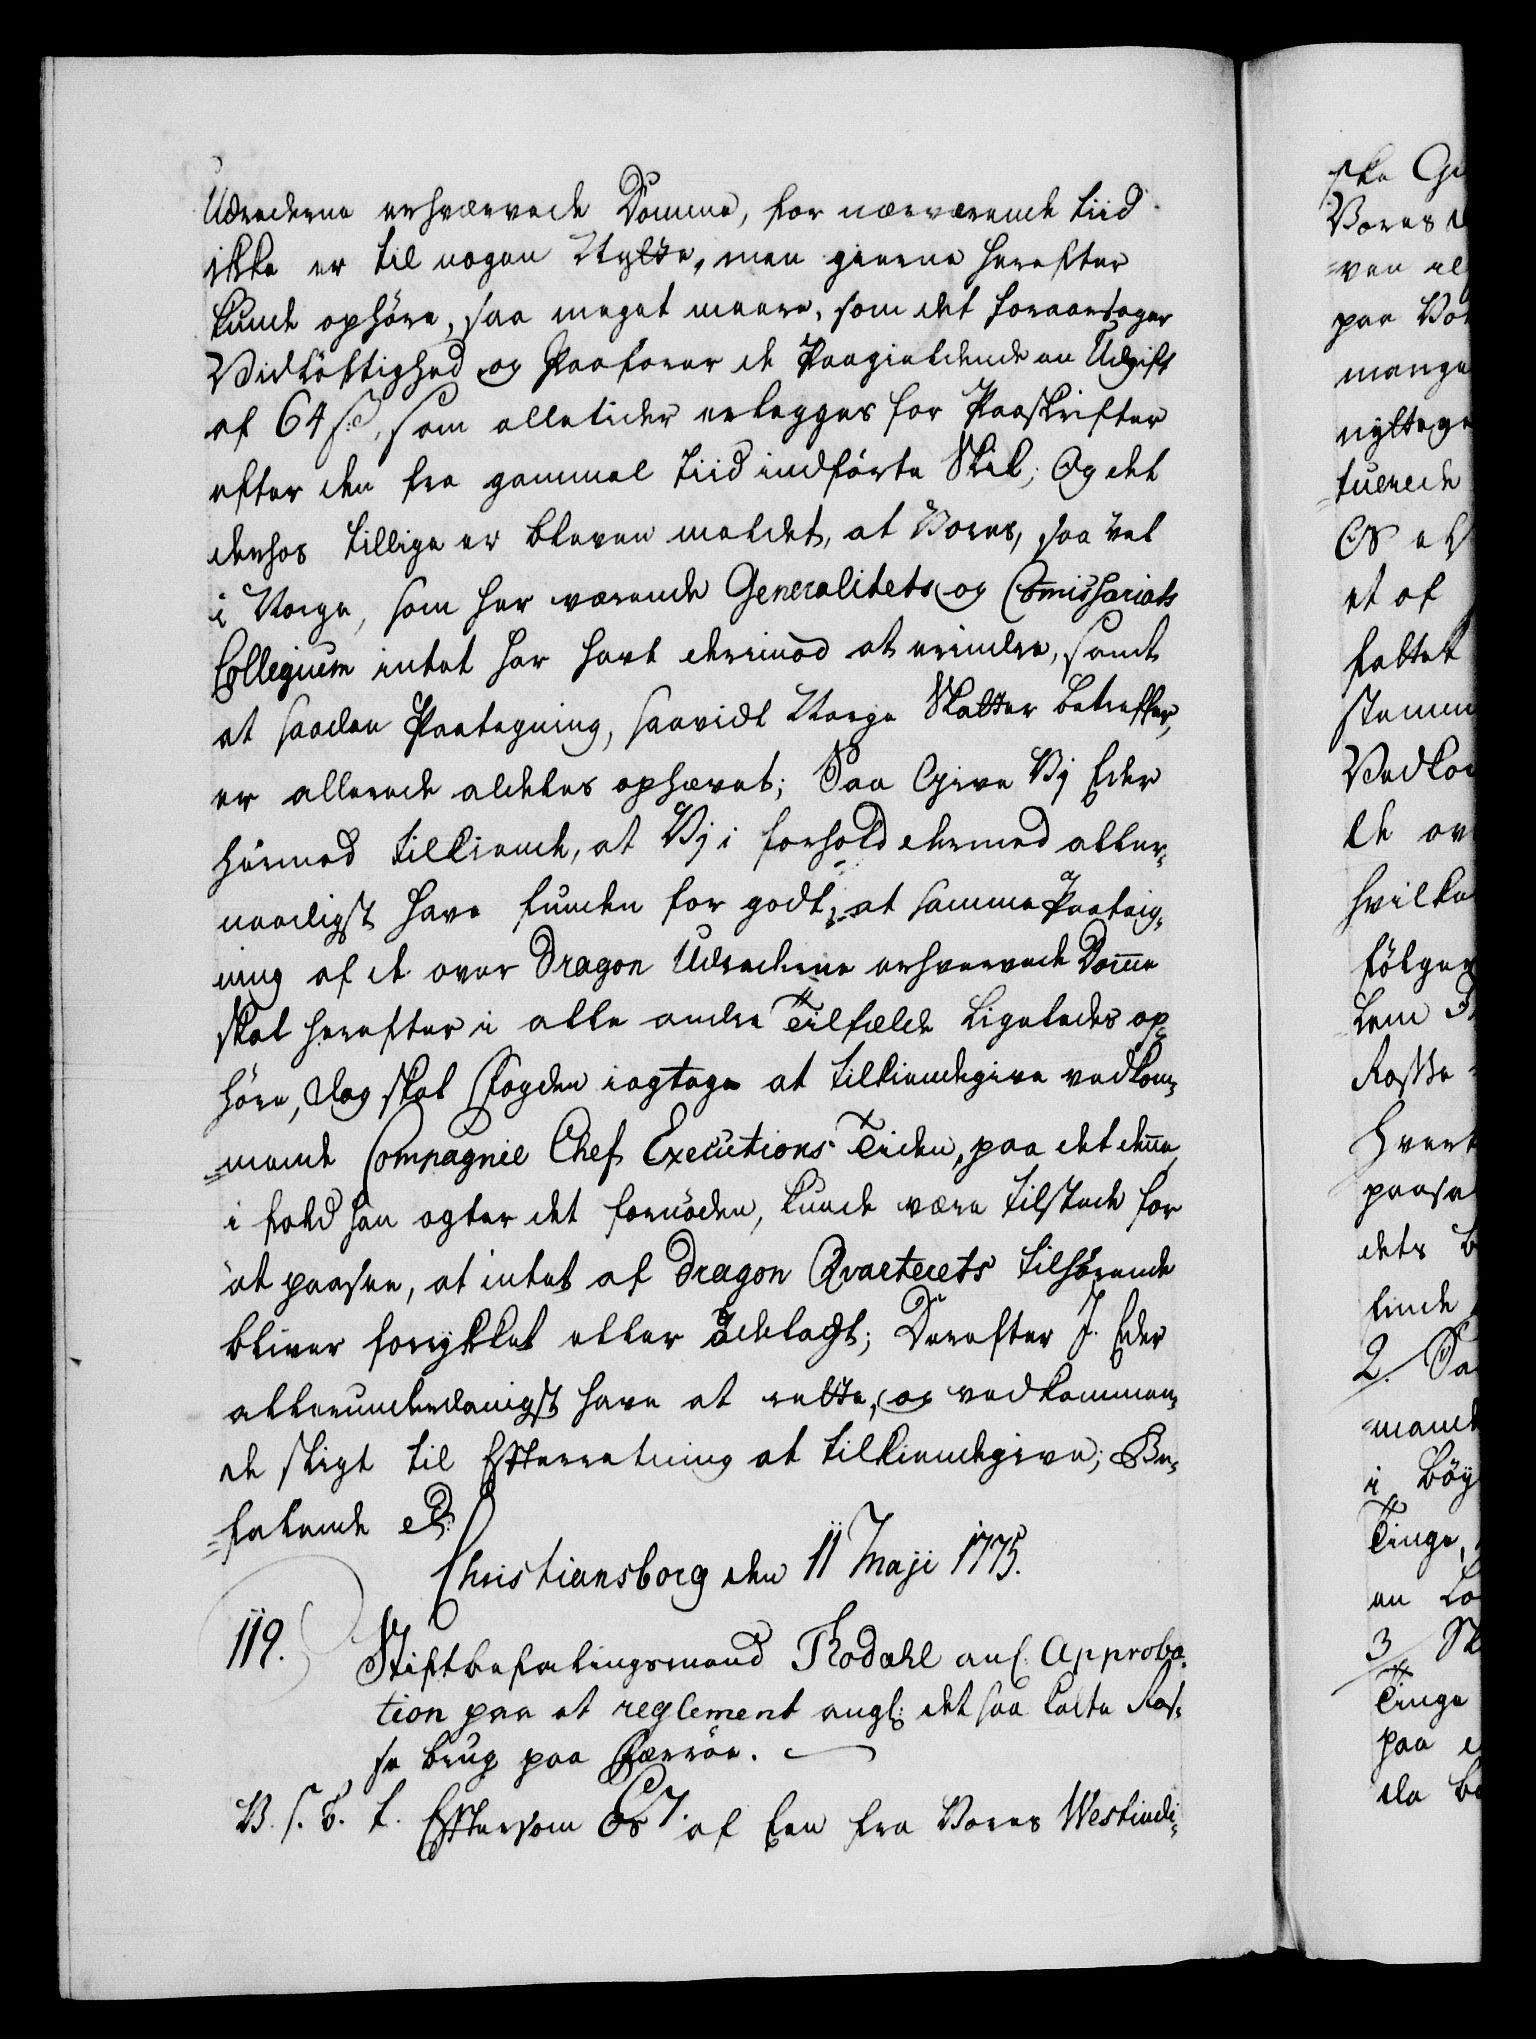 Udrederne erhværvede Domme, for nærværende tiid
ikke er til nogen Nytte, men gierne herefter
kunde ophöre, saa meget meere, som det foraarsager
Vidløftighed og Paaförer de Paagieldende en Udgift
af 64 s:, som alletider erlegges for Paaskrifter
efter den fra gammel tiid indførte Skik; Og det
derhos tillige er bleven meldet, at Vores, saa vel
i Norge, som her værende Generalitets og Commissariats
Collegium intet har havt derimod at erindre, samt
at saadan Paategning, saavidt Norge Skatter betreffer,
er allerede aldeles ophævet; Saa Give Vj Eder
hermed tilkiende, at Vj i forhold dermed aller-
naadigst have funden for godt, at samme Paateig-
ning af de over Dragon Udrederne erhvervede Domme
skal herefter i alle andre Tilfælde ligeledes op-
höre, dog skal Fogden iagtage at tilkiendegive vedkom-
=mende Compagnie Chef Executions Tiden, paa det denne,
i fald han agter det fornöden, kunde være tilstede for
at paasee, at intet af Dragon Qvarterets tilhörende
bliver forrykket eller ödelagt; Derefter J. Eder
allerunderdanigst have at rette, og vedkommen-
de sligt til Efterretning at tilkiendegive; Be-
=falende etc:
Christiansborg den 11 Maji 1775.
119. Stiftbefalingsmand Thodahl anl. Approba-
tion paa et reglement angl: det saa kaldte Ros-
se brug paa Færröe.
V. S. G. T. Eftersom Os af Een fra Vores Westindi-
ske
Vores
=ven
paa
mange
nyttige
=tuerede
Os
et af
fattet
hvilke
følger
Rosse
hvert
paasee
dets
finde
2.
=mænd
i
Tinge,
en
3
Tinge
paa
da